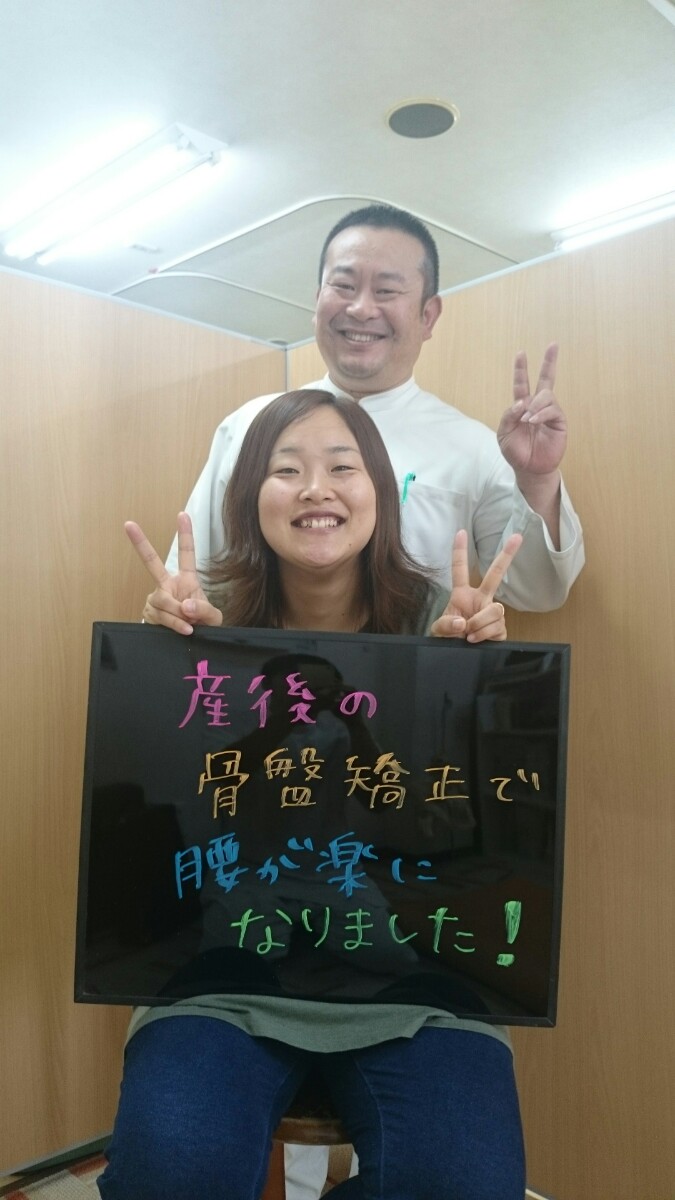 産後の
骨盤矯正で
腰が楽に
なりました!